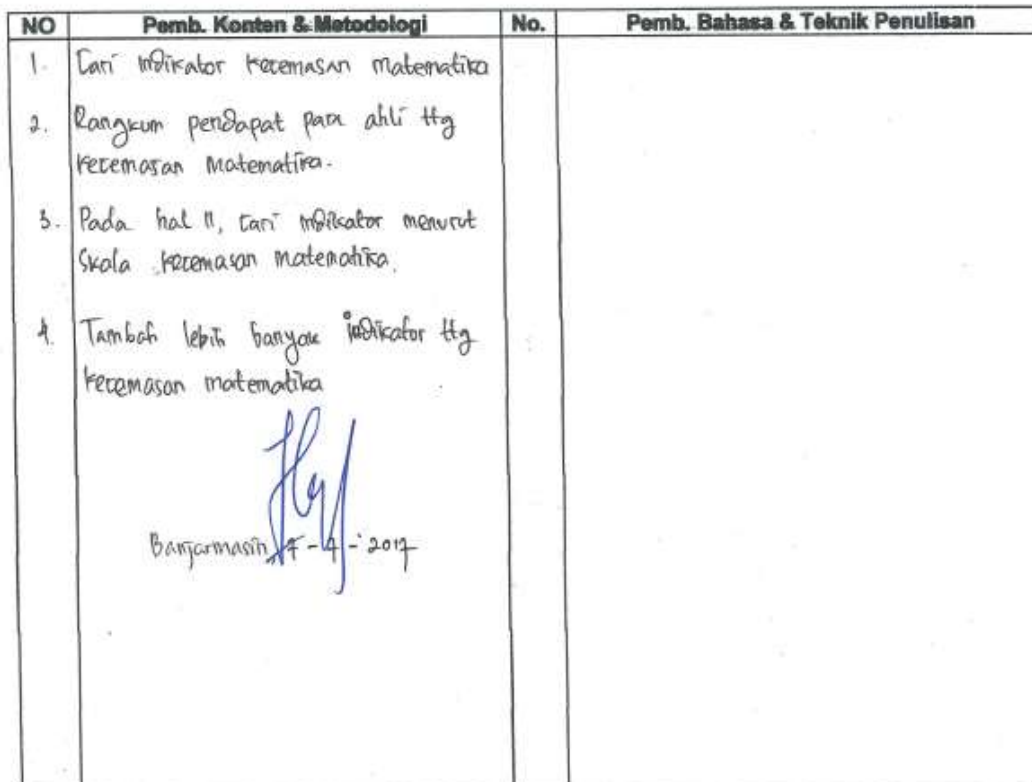 NO Pemb. Konten & Metodologi No. Pemb. Bahasa & Teknik Penulisan
1. Cari indikator kecemasan matematika
2. Rangkum pendapat para ahli ttg
kecemasan matematika.
3. Pada hal 11, cari indikator menurut
Skala kecemasan matematika.
4. Tambah lebih banyak indikator ttg
kecemasan matematika
Banjarmasin, - 4 - 2017